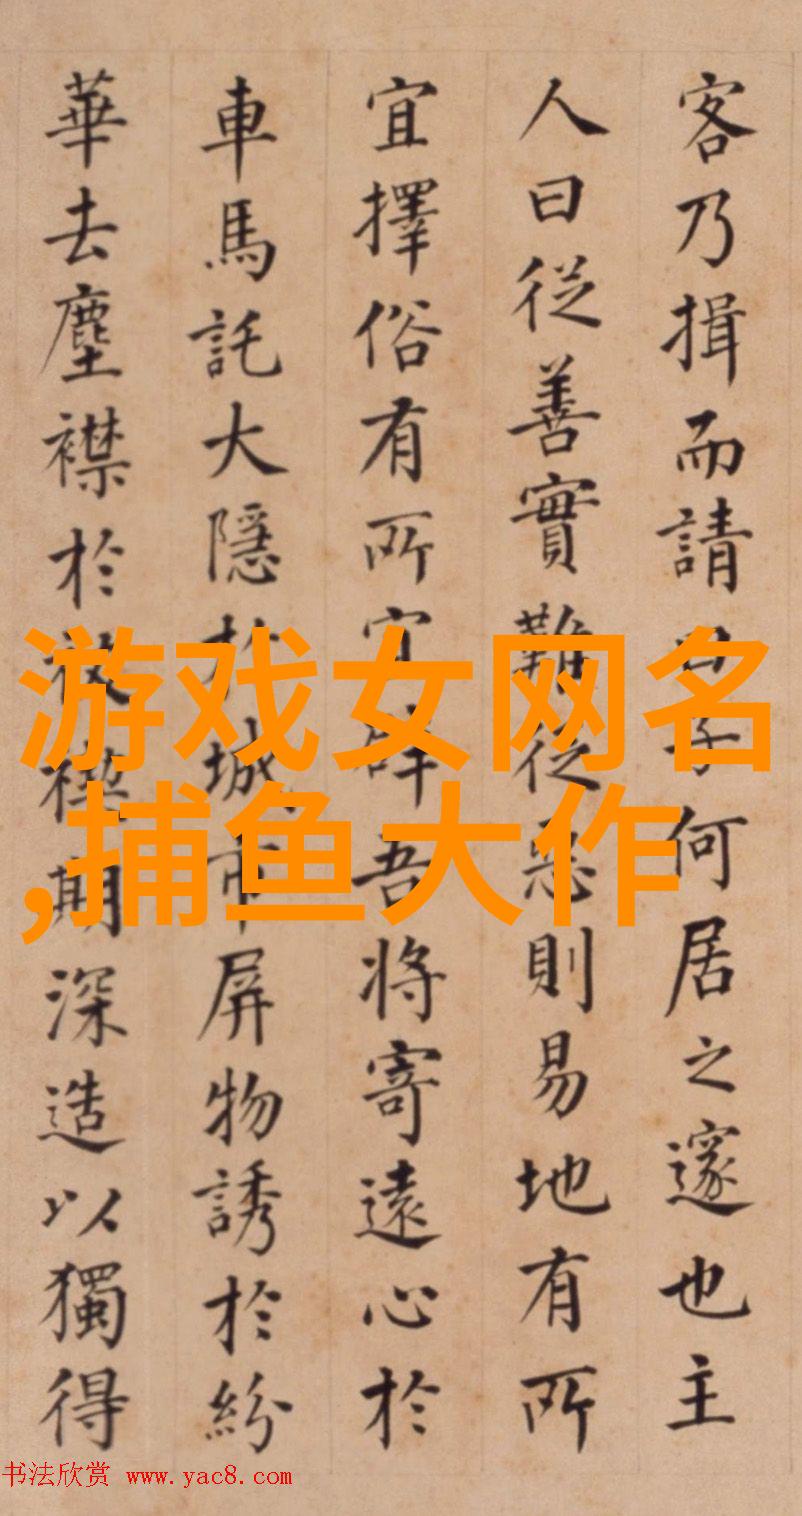 客乃揖而請子何居之邃也主
人曰從善實難從惡則易地有所
宜擇俗有所宜吾將寄遠心於
車馬託大隱於城市屏物誘於紛
華去塵襟於禊期深造以獨得
游戏女网名
,捕鱼大作
书法欣赏 www.yac8.com